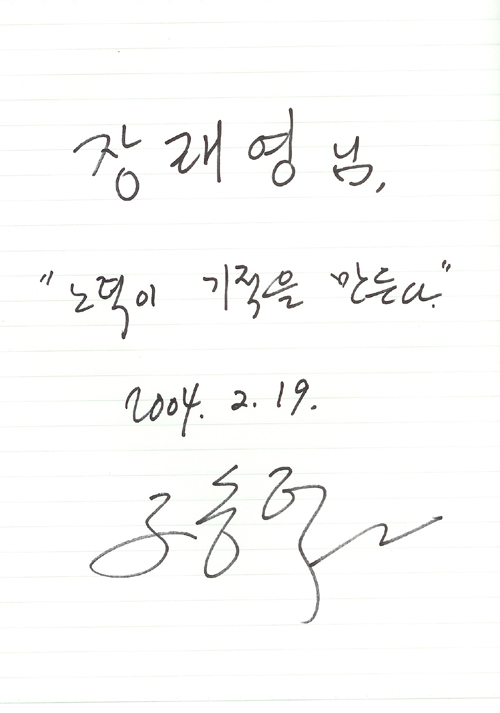 장래영 님,
"노력이 기적을 만든다."
2004. 2. 19.